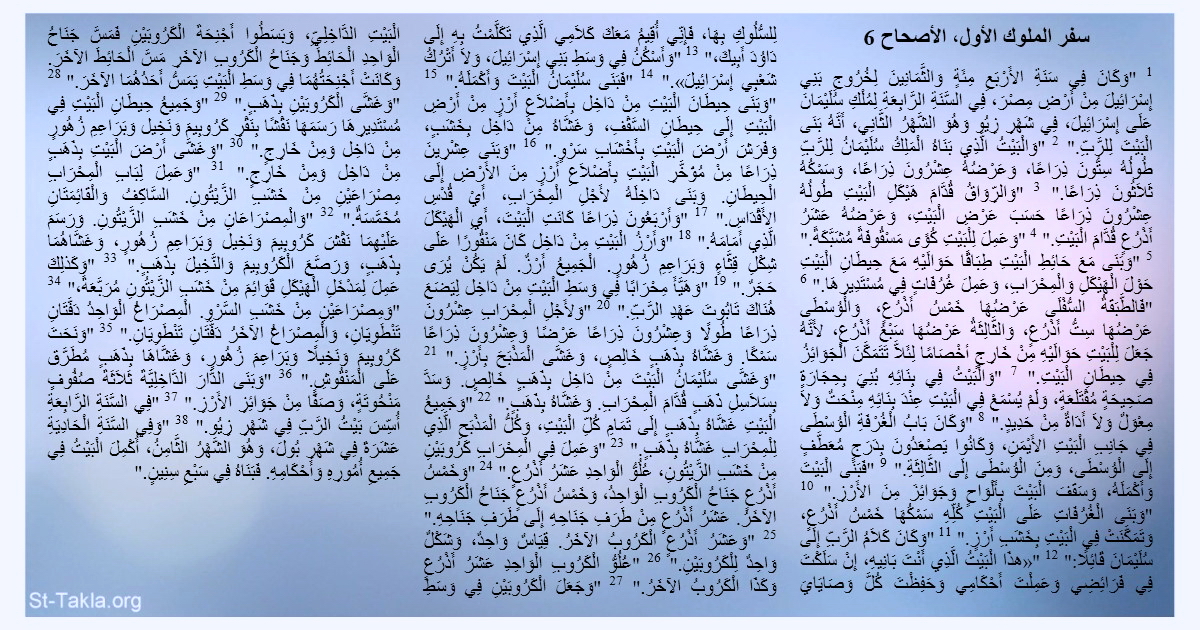 سفر الملوك الأول، الأصحاح 6
1 "وَكَانَ فِي سَنَةِ الأَرْبَعِ مِئَةٍ وَالثَّمَانِينَ لِخُرُوجِ بَنِي
إِسْرَائِيلَ مِنْ أَرْضِ مِصْرَ، فِي السَّنَةِ الرَّابِعَةِ لِمُلْكِ سُلَيْمَانَ
عَلَى إِسْرَائِيلَ، فِي شَهْرِ زِيُو وَهُوَ الشَّهْرُ الثَّانِي، أَنَّهُ بَنَى
الْبَيْتَ لِلرَّبِّ." 2 "وَالْبَيْتُ الَّذِي بَنَاهُ الْمَلِكُ سُلَيْمَانُ لِلرَّبِّ
طُولُهُ سِتُّونَ ذِرَاعًا، وَعَرْضُهُ عِشْرُونَ ذِرَاعًا، وَسَمْكُهُ
ثَلاَثُونَ ذِرَاعًا." 3 "وَالرِّوَاقُ قُدَّامَ هَيْكَلِ الْبَيْتِ طُولُهُ
عِشْرُونَ ذِرَاعًا حَسَبَ عَرْضِ الْبَيْتِ، وَعَرْضُهُ عَشَرُ
أَذْرُعٍ قُدَّامَ الْبَيْتِ." 4 "وَعَمِلَ لِلْبَيْتِ كُوًى مَسْقُوفَةً مُشَبَّكَةً."
5 "وَبَنَى مَعَ حَائِطِ الْبَيْتِ طِبَاقًا حَوَالَيْهِ مَعَ حِيطَانِ الْبَيْتِ
حَوْلَ الْهَيْكَلِ وَالْمِحْرَابِ، وَعَمِلَ غُرُفَاتٍ فِي مُسْتَدِيرِهَا." 6
"فَالطَّبَقَةُ السُّفْلَى عَرْضُهَا خَمْسُ أَذْرُعٍ، وَالْوُسْطَى
عَرْضُهَا سِتُّ أَذْرُعٍ، وَالثَّالِثَةُ عَرْضُهَا سَبْعُ أَذْرُعٍ، لأَنَّهُ
جَعَلَ لِلْبَيْتِ حَوَالَيْهِ مِنْ خَارِجٍ أَخْصَامًا لِئَلاَّ تَتَمَكَّنَ الْجَوَائِزُ
فِي حِيطَانِ الْبَيْتِ." 7 "وَالْبَيْتُ فِي بِنَائِهِ بُنِيَ بِحِجَارَةٍ
صَحِيحَةٍ مُقْتَلَعَةٍ، وَلَمْ يُسْمَعْ فِي الْبَيْتِ عِنْدَ بِنَائِهِ مِنْحَتٌ وَلاَ
مِعْوَلٌ وَلاَ أَدَاةٌ مِنْ حَدِيدٍ." 8 "وَكَانَ بَابُ الْغُرْفَةِ الْوُسْطَى
فِي جَانِبِ الْبَيْتِ الأَيْمَنِ، وَكَانُوا يَصْعَدُونَ بِدَرَجٍ مُعَطَّفٍ
إِلَى الْوُسْطَى، وَمِنَ الْوُسْطَى إِلَى الثَّالِثَةِ." 9 "فَبَنَى الْبَيْتَ
وَأَكْمَلَهُ، وَسَقَفَ الْبَيْتَ بِأَلْوَاحٍ وَجَوَائِزَ مِنَ الأَرْزِ." 10
"وَبَنَى الْغُرُفَاتِ عَلَى الْبَيْتِ كُلِّهِ سَمْكُهَا خَمْسُ أَذْرُعٍ،
وَتَمَكَّنَتْ فِي الْبَيْتِ بِخَشَبِ أَرْزٍ." 11 "وَكَانَ كَلاَمُ الرَّبِّ إِلَى
سُلَيْمَانَ قَائِلًا:" 12 "«هذَا الْبَيْتُ الَّذِي أَنْتَ بَانِيهِ، إِنْ سَلَكْتَ
فِي فَرَائِضِي وَعَمِلْتَ أَحْكَامِي وَحَفِظْتَ كُلَّ وَصَايَايَ
لِلسُّلُوكِ بِهَا، فَإِنِّي أُقِيمُ مَعَكَ كَلاَمِي الَّذِي تَكَلَّمْتُ بِهِ إِلَى
دَاوُدَ أَبِيكَ،" 13 "وَأَسْكُنُ فِي وَسَطِ بَنِي إِسْرَائِيلَ، وَلاَ أَتْرُكُ
شَعْبِي إِسْرَائِيلَ»." 14 "فَبَنَى سُلَيْمَانُ الْبَيْتَ وَأَكْمَلَهُ." 15
"وَبَنَى حِيطَانَ الْبَيْتِ مِنْ دَاخِل بِأَضْلاَعِ أَرْزٍ مِنْ أَرْضِ
الْبَيْتِ إِلَى حِيطَانِ السَّقْفِ، وَغَشَّاهُ مِنْ دَاخِل بِخَشَبٍ،
وَفَرَشَ أَرْضَ الْبَيْتِ بِأَخْشَابِ سَرْوٍ." 16 "وَبَنَى عِشْرِينَ
ذِرَاعًا مِنْ مُؤَخَّرِ الْبَيْتِ بِأَضْلاَعِ أَرْزٍ مِنَ الأَرْضِ إِلَى
الْحِيطَانِ. وَبَنَى دَاخِلَهُ لأَجْلِ الْمِحْرَابِ، أَيْ قُدْسِ
الأَقْدَاسِ." 17 "وَأَرْبَعُونَ ذِرَاعًا كَانَتِ الْبَيْتَ، أَيِ الْهَيْكَلَ
الَّذِي أَمَامَهُ." 18 "وَأَرْزُ الْبَيْتِ مِنْ دَاخِل كَانَ مَنْقُورًا عَلَى
شِكْلِ قِثَّاءٍ وَبَرَاعِمِ زُهُورٍ. الْجَمِيعُ أَرْزٌ. لَمْ يَكُنْ يُرَى
حَجَرٌ." 19 "وَهَيَّأَ مِحْرَابًا فِي وَسَطِ الْبَيْتِ مِنْ دَاخِل لِيَضَعَ
هُنَاكَ تَابُوتَ عَهْدِ الرَّبِّ." 20 "وَلأَجْلِ الْمِحْرَابِ عِشْرُونَ
ذِرَاعًا طُولًا وَعِشْرُونَ ذِرَاعًا عَرْضًا وَعِشْرُونَ ذِرَاعًا
سَمْكًا. وَغَشَّاهُ بِذَهَبٍ خَالِصٍ، وَغَشَّى الْمَذْبَحَ بِأَرْزٍ." 21
"وَغَشَّى سُلَيْمَانُ الْبَيْتَ مِنْ دَاخِل بِذَهَبٍ خَالِصٍ. وَسَدَّ
بِسَلاَسِلِ ذَهَبٍ قُدَّامَ الْمِحْرَابِ. وَغَشَّاهُ بِذَهَبٍ." 22 "وَجَمِيعُ
الْبَيْتِ غَشَّاهُ بِذَهَبٍ إِلَى تَمَامِ كُلِّ الْبَيْتِ، وَكُلَّ الْمَذْبَحِ الَّذِي
لِلْمِحْرَابِ غَشَّاهُ بِذَهَبٍ." 23 "وَعَمِلَ فِي الْمِحْرَابِ كَرُوبَيْنِ
مِنْ خَشَبِ الزَّيْتُونِ، عُلُوُّ الْوَاحِدِ عَشَرُ أَذْرُعٍ." 24 "وَخَمْسُ
أَذْرُعٍ جَنَاحُ الْكَرُوبِ الْوَاحِدُ، وَخَمْسُ أَذْرُعٍ جَنَاحُ الْكَرُوبِ
الآخَرُ. عَشَرُ أَذْرُعٍ مِنْ طَرَفِ جَنَاحِهِ إِلَى طَرَفِ جَنَاحِهِ."
25 "وَعَشَرُ أَذْرُعٍ الْكَرُوبُ الآخَرُ. قِيَاسٌ وَاحِدٌ، وَشَكْلٌ
وَاحِدٌ لِلْكَرُوبَيْنِ." 26 "عُلُوُّ الْكَرُوبِ الْوَاحِدِ عَشَرُ أَذْرُعٍ
وَكَذَا الْكَرُوبُ الآخَرُ." 27 "وَجَعَلَ الْكَرُوبَيْنِ فِي وَسَطِ
الْبَيْتِ الدَّاخِلِيِّ، وَبَسَطُوا أَجْنِحَةَ الْكَرُوبَيْنِ فَمَسَّ جَنَاحُ
الْوَاحِدِ الْحَائِطَ وَجَنَاحُ الْكَرُوبِ الآخَرِ مَسَّ الْحَائِطَ الآخَرَ.
وَكَانَتْ أَجْنِحَتُهُمَا فِي وَسَطِ الْبَيْتِ يَمَسُّ أَحَدُهُمَا الآخَرَ." 28
"وَغَشَّى الْكَرُوبَيْنِ بِذَهَبٍ." 29 "وَجَمِيعُ حِيطَانِ الْبَيْتِ فِي
مُسْتَدِيرِهَا رَسَمَهَا نَقْشًا بِنَقْرِ كَرُوبِيمَ وَنَخِيل وَبَرَاعِمِ زُهُورٍ
مِنْ دَاخِل وَمِنْ خَارِجٍ." 30 "وَغَشَّى أَرْضَ الْبَيْتِ بِذَهَبٍ
مِنْ دَاخِل وَمِنْ خَارِجٍ." 31 "وَعَمِلَ لِبَابِ الْمِحْرَابِ
مِصْرَاعَيْنِ مِنْ خَشَبِ الزَّيْتُونِ. السَّاكِفُ وَالْقَائِمَتَانِ
مُخَمَّسَةٌ." 32 "وَالْمِصْرَاعَانِ مِنْ خَشَبِ الزَّيْتُونِ. وَرَسَمَ
عَلَيْهِمَا نَقْشَ كَرُوبِيمَ وَنَخِيل وَبَرَاعِمِ زُهُورٍ، وَغَشَّاهُمَا
بِذَهَبٍ، وَرَصَّعَ الْكَرُوبِيمَ وَالنَّخِيلَ بِذَهَبٍ." 33 "وَكَذلِكَ
عَمِلَ لِمَدْخَلِ الْهَيْكَلِ قَوَائِمَ مِنْ خَشَبِ الزَّيْتُونِ مُرَبَّعَةً،" 34
"وَمِصْرَاعَيْنِ مِنْ خَشَبِ السَّرْوِ. الْمِصْرَاعُ الْوَاحِدُ دَفَّتَانِ
تَنْطَوِيَانِ، وَالْمِصْرَاعُ الآخَرُ دَفَّتَانِ تَنْطَوِيَانِ." 35 "وَنَحَتَ
كَرُوبِيمَ وَنَخِيلًا وَبَرَاعِمَ زُهُورٍ، وَغَشَّاهَا بِذَهَبٍ مُطَرَّق
عَلَى الْمَنْقُوشِ." 36 "وَبَنَى الدَّارَ الدَّاخِلِيَّةَ ثَلاَثَةَ صُفُوفٍ
مَنْحُوتَةٍ، وَصَفًّا مِنْ جَوَائِزِ الأَرْزِ." 37 "فِي السَّنَةِ الرَّابِعَةِ
أُسِّسَ بَيْتُ الرَّبِّ فِي شَهْرِ زِيُو." 38 "وَفِي السَّنَةِ الْحَادِيَةِ
عَشَرَةَ فِي شَهْرِ بُولَ، وَهُوَ الشَّهْرُ الثَّامِنُ، أُكْمِلَ الْبَيْتُ فِي
جَمِيعِ أُمُورِهِ وَأَحْكَامِهِ. فَبَنَاهُ فِي سَبْعِ سِنِينٍ."
St-Takla.org